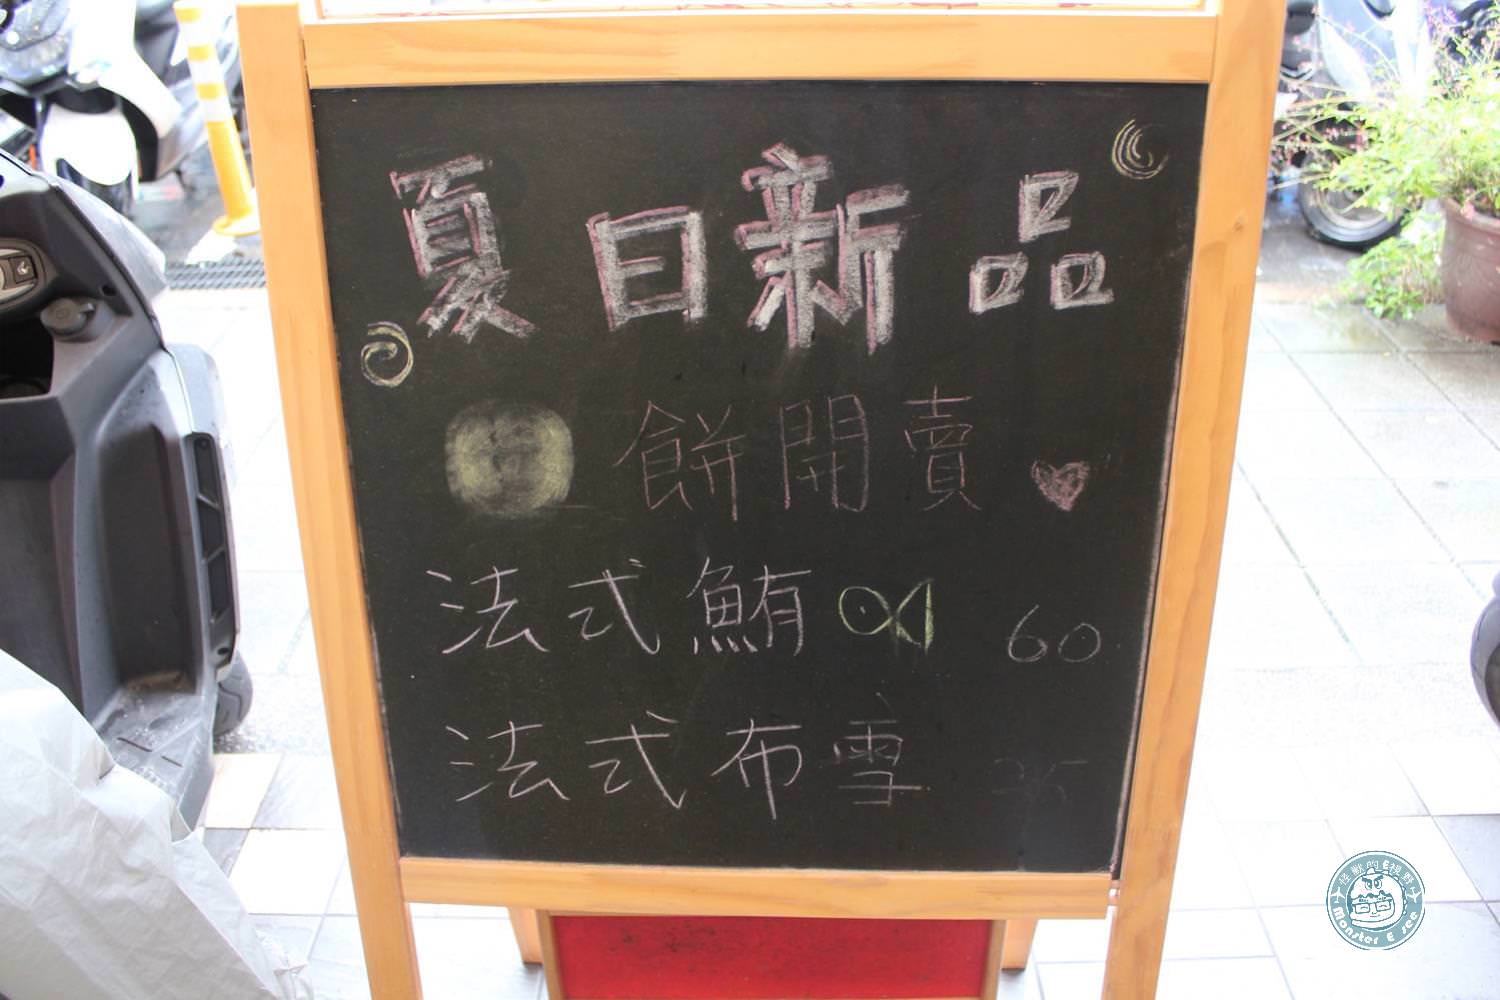 夏日新品
餅開賣
法式鮪 60
法式布雪
怪獸的E視野
Monster E see